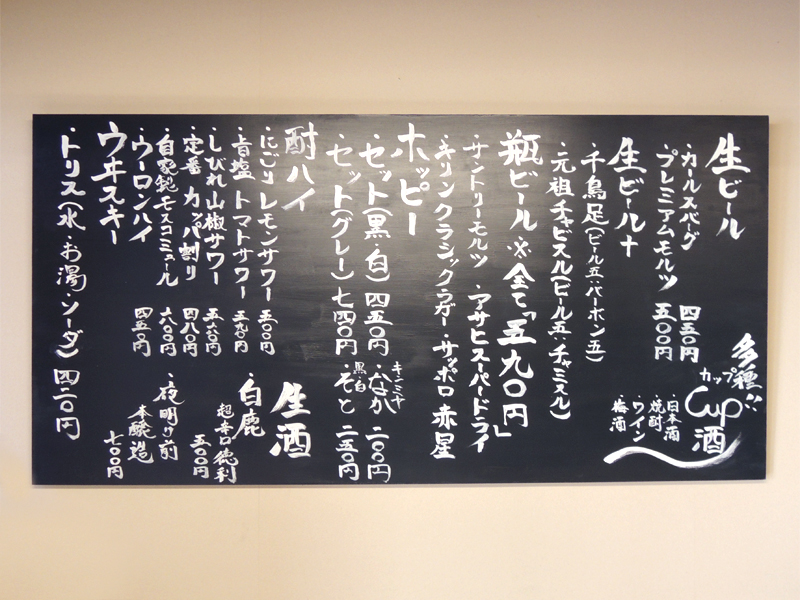 生ビール
・カールスバーグ 四五〇円
・プレミアムモルツ 五〇〇円
生ビール+
・千鳥足(ビール五:バーボン五)
・元祖チャビスル(ビール五:チャミスル)
瓶ビール ※全て「五九〇円」
・サントリーモルツ ・アサヒスーパードライ
・キリンクラシックラガー ・サッポロ赤星
ホッピー
・セット(黒・白) 四五〇円
・セット(グレー) 七四〇円
・なか キンミヤ 二〇〇円
・そと 黒・白 二五〇円
酎ハイ
・にごりレモンサワー 五〇〇円
・旨塩トマトサワー 五九〇円
・しびれ山椒サワー 五六〇円
・定番カッパ割り 四八〇円
・自家製モスコミュール 六〇〇円
・ウーロンハイ 四五〇円
ウヰスキー
・トリス(水・お湯・ソーダ) 四二〇円
多種!!
カップ
Cup酒
・日本酒
・焼酎
・ワイン
・梅酒
生酒
・白鹿
超辛口徳利
五〇〇円
・夜明け前
本醸造
七〇〇円